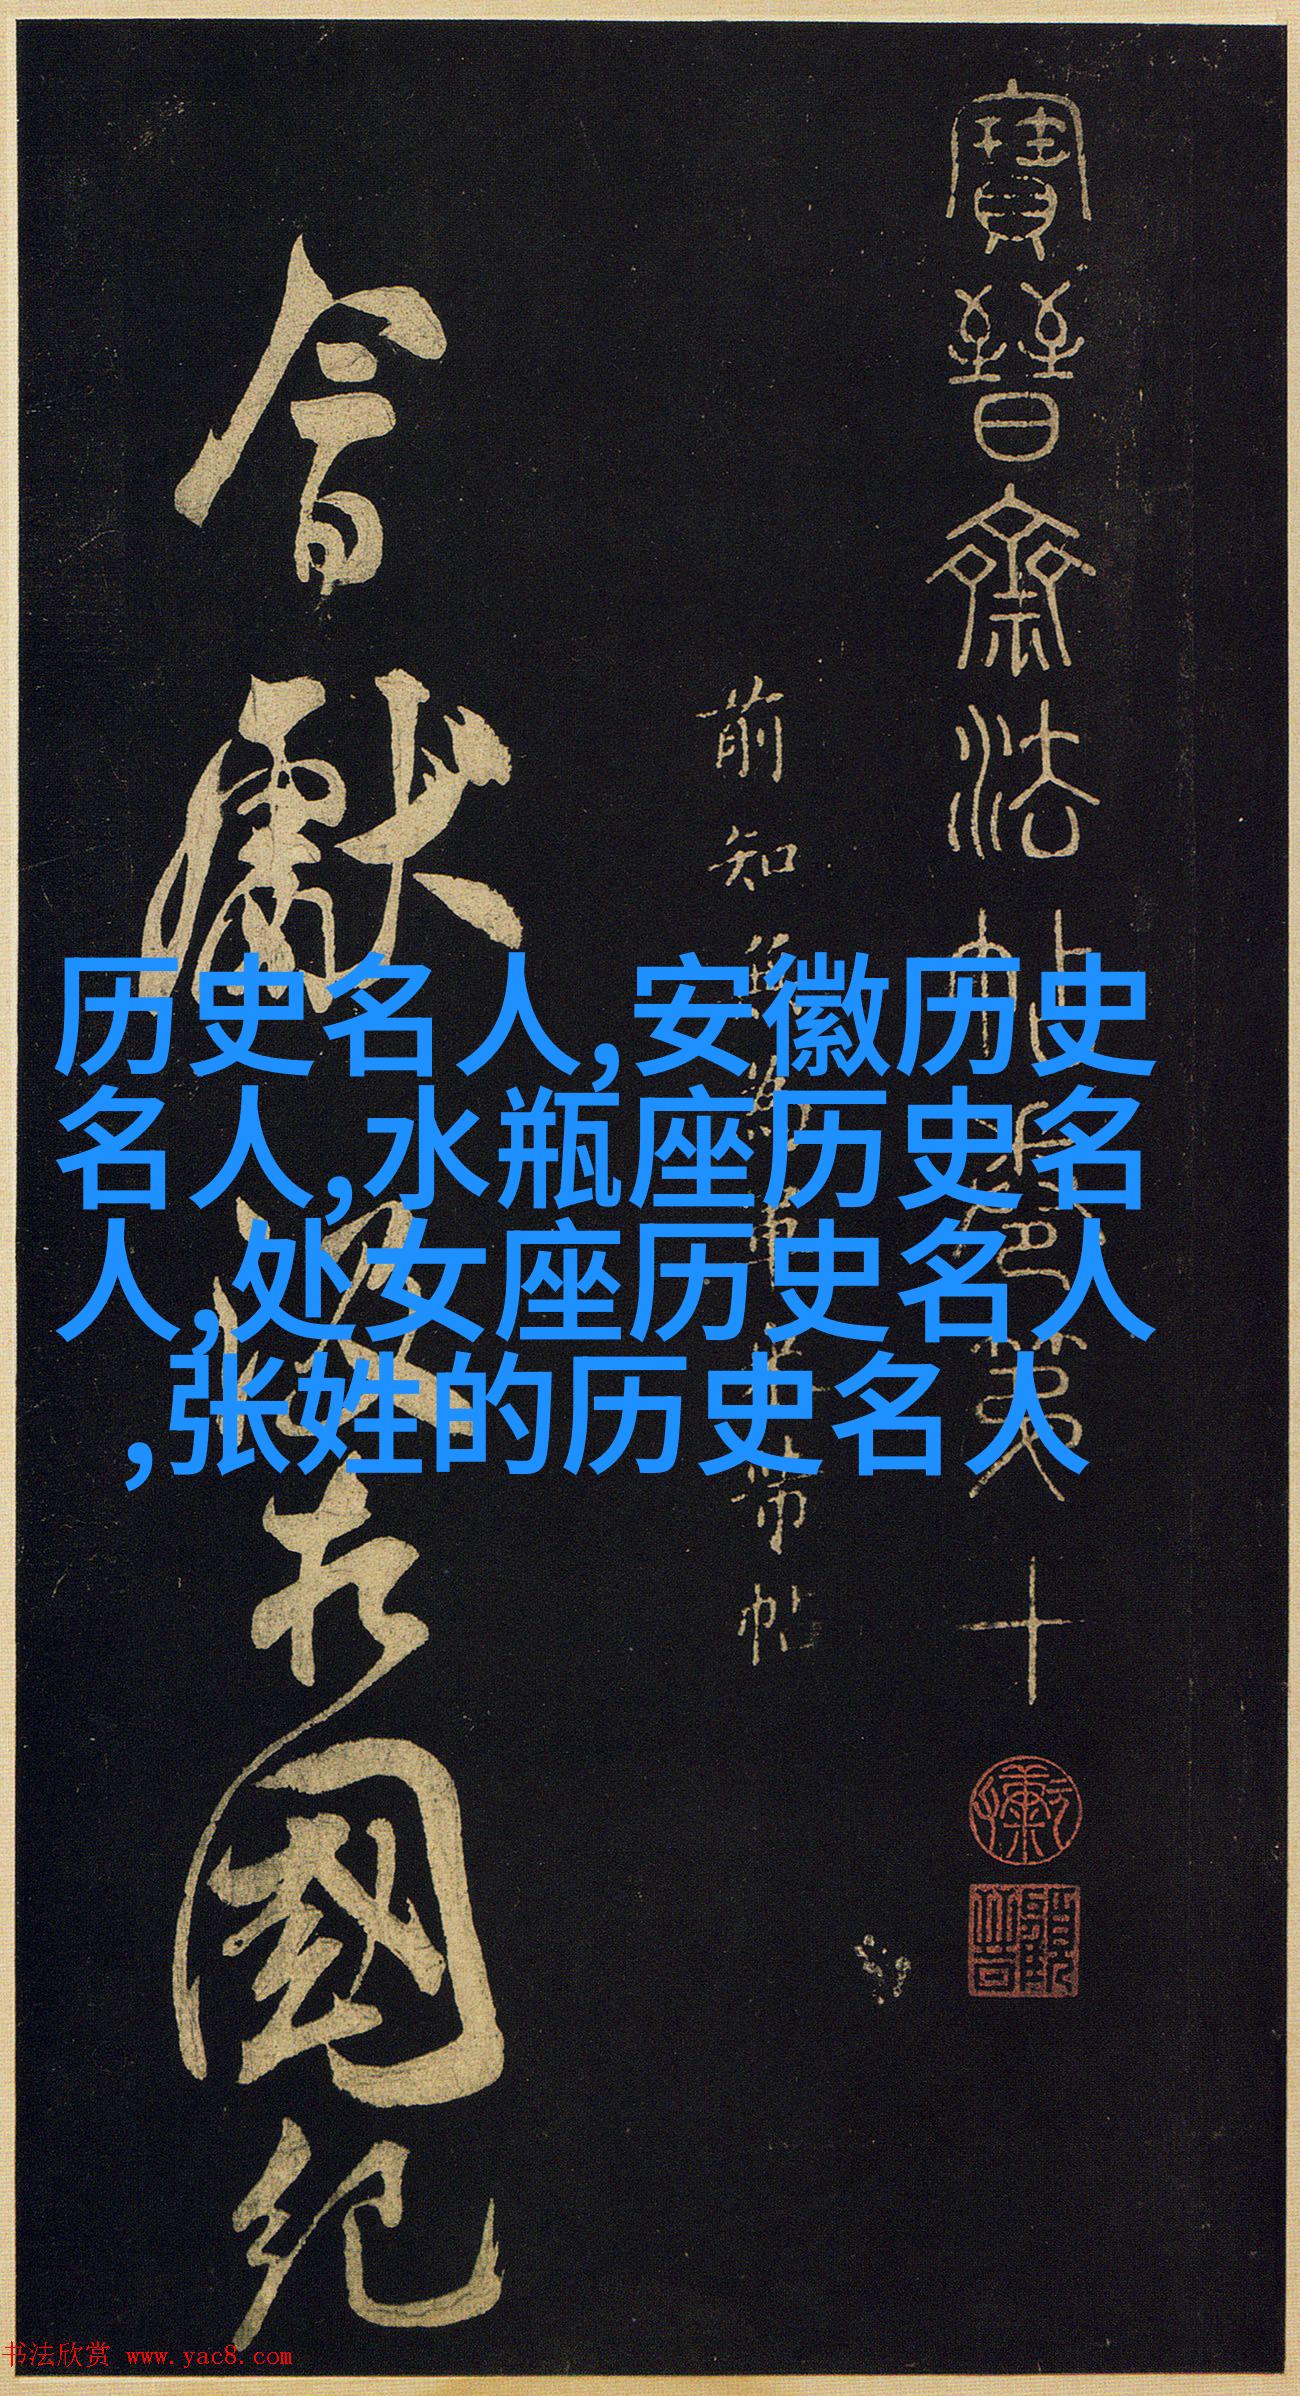 寶晉齋法帖卷第十
前知無為軍米芾帖
今獻
國紀
历史名人,安徽历史
名人,水瓶座历史名
人,处女座历史名人
,张姓的历史名人
书法欣赏 www.yac8.com